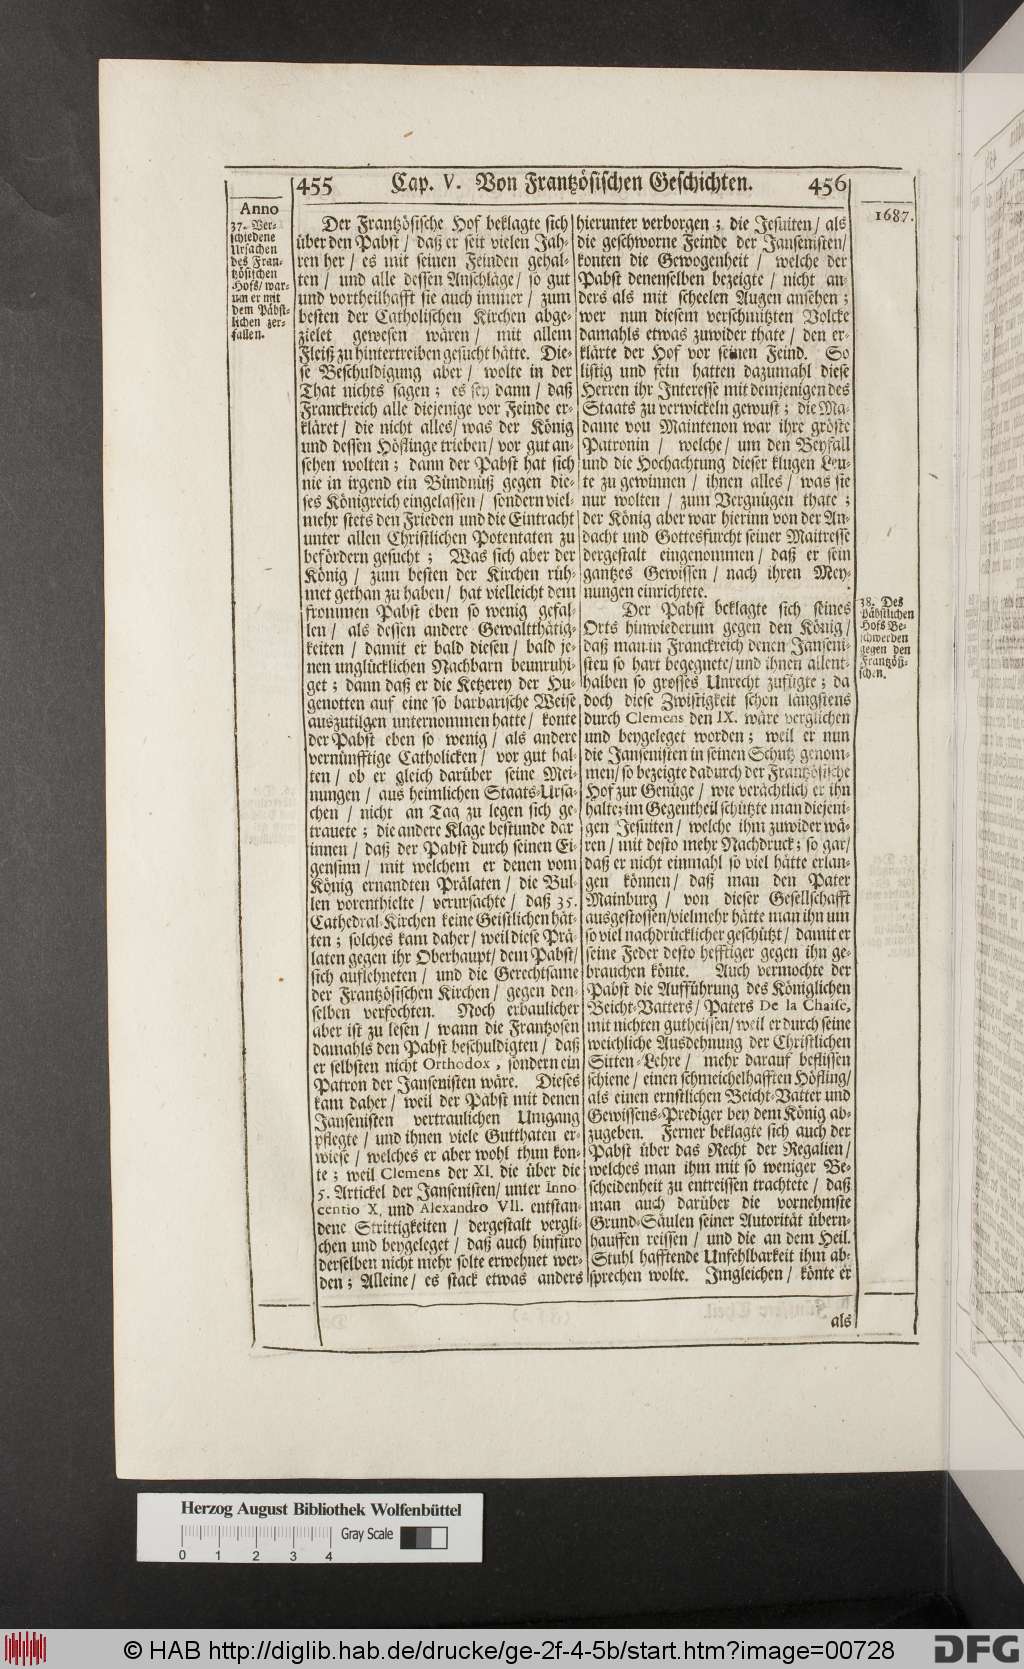 455 Cap. V. Von Frantzösischen Geschichten. 456
Anno
1687.
37. Ver-
schiedene
Ursachen
des Fran-
tzösischen
Hofs/ war-
um er mit
dem Päbst-
lichen zer-
fallen.
Der Frantzösische Hof beklagte sich
über den Pabst/ daß er seit vielen Jah-
ren her/ es mit seinen Feinden gehal-
ten/ und alle dessen Anschläge/ so gut
und vortheilhafft sie auch immer/ zum
besten der Catholischen Kirchen abge-
zielet gewesen wären/ mit allem
Fleiß zu hintertreiben gesucht hätte. Die-
se Beschuldigung aber/ wolte in der
That nichts sagen; es sey dann/ daß
Franckreich alle diejenige vor Feinde er-
kläret/ die nicht alles/ was der König
und dessen Höflinge trieben/ vor gut an-
sehen wolten; dann der Pabst hat sich
nie in irgend ein Bündnüß gegen die-
ses Königreich eingelassen/ sondern viel-
mehr stets den Frieden und die Eintracht
unter allen Christlichen Potentaten zu
befördern gesucht; Was sich aber der
König/ zum besten der Kirchen rüh-
met gethan zu haben/ hat vielleicht dem
frommen Pabst eben so wenig gefal-
len/ als dessen andere Gewaltthätig-
keiten/ damit er bald diesen/ bald je-
nen unglücklichen Nachbarn beunruhi-
get; dann daß er die Ketzerey der Hu-
genotten auf eine so barbarische Weise
auszutilgen unternommen hatte/ konte
der Pabst eben so wenig/ als andere
vernünfftige Catholicken/ vor gut hal-
ten/ ob er gleich darüber seine Mei-
nungen/ aus heimlichen Staats-Ursa-
chen/ nicht an Tag zu legen sich ge-
trauete; die andere Klage bestunde dar
innen/ daß der Pabst durch seinen Ei-
gensinn/ mit welchem er denen vom
König ernandten Prälaten/ die Bul-
len vorenthielte/ verursachte/ daß 35.
Cathedral-Kirchen keine Geistlichen hät-
ten; solches kam daher/ weil diese Prä-
laten gegen ihr Oberhaupt/ dem Pabst/
sich auflehneten/ und die Gerechtsame
der Frantzösischen Kirchen/ gegen den-
selben verfochten. Noch erbaulicher
aber ist zu lesen/ wann die Frantzosen
damahls den Pabst beschuldigten/ daß
er selbsten nicht Orthodox, sondern ein
Patron der Jansenisten wäre. Dieses
kam daher/ weil der Pabst mit denen
Jansenisten vertraulichen Umgang
pflegte/ und ihnen viele Gutthaten er-
wiese/ welches er aber wohl thun kon-
te; weil Clemens der XI. die über die
5. Artickel der Jansenisten/ unter Inno
centio X. und Alexandro VII. entstan-
dene Strittigkeiten/ dergestalt vergli-
chen und beygeleget/ daß auch hinfüro
derselben nicht mehr solte erwehnet wer-
den; Alleine/ es stack etwas anders
hierunter verborgen; die Jesuiten/ als
die geschworne Feinde der Jansenisten/
konten die Gewogenheit/ welche der
Pabst denenselben bezeigte/ nicht an-
ders als mit scheelen Augen ansehen;
wer nun diesem verschmitzten Volcke
damahls etwas zuwider thate/ den er-
klärte der Hof vor seinen Feind. So
listig und fein hatten dazumahl diese
Herren ihr Interesse mit demjenigen des
Staats zu verwickeln gewust; die Ma-
dame von Maintenon war ihre gröste
Patronin/ welche/ um den Beyfall
und die Hochachtung dieser klugen Leu-
te zu gewinnen/ ihnen alles/ was sie
nur wolten/ zum Vergnügen thate;
der König aber war hierinn von der An-
dacht und Gottesfurcht seiner Maitresse
dergestalt eingenommen/ daß er sein
gantzes Gewissen/ nach ihren Mey-
nungen einrichtete.
38. Des
Päbstlichen
Hofs Be-
schwerden
gegen den
Frantzösi-
schen.
Der Pabst beklagte sich seines
Orts hinwiederum gegen den König/
daß man in Franckreich denen Janseni-
sten so hart begegnete/ und ihnen allent-
halben so grosses Unrecht zufügte; da
doch diese Zwistigkeit schon längstens
durch Clemens den IX. wäre verglichen
und beygeleget worden; weil er nun
die Jansenisten in seinen Schutz genom-
men/ so bezeigte dadurch der Frantzösische
Hof zur Genüge/ wie verächtlich er ihn
halte; im Gegentheil schützte man diejeni-
gen Jesuiten/ welche ihm zuwider wä-
ren/ mit desto mehr Nachdruck; so gar/
daß er nicht einmahl so viel hätte erlan-
gen können/ daß man den Pater
Mainburg/ von dieser Gesellschafft
ausgestossen/ vielmehr hätte man ihn um
so viel nachdrücklicher geschützt/ damit er
seine Feder desto hefftiger gegen ihn ge-
brauchen könte. Auch vermochte der
Pabst die Aufführung des Königlichen
Beicht-Vatters/ Paters De la Chaise,
mit nichten gutheissen/ weil er durch seine
weichliche Ausdehnung der Christlichen
Sitten-Lehre/ mehr darauf beflissen
schiene/ einen schmeichelhafften Höfling/
als einen ernstlichen Beicht-Vatter und
Gewissens-Prediger bey dem König ab-
zugeben. Ferner beklagte sich auch der
Pabst über das Recht der Regalien/
welches man ihm mit so weniger Be-
scheidenheit zu entreissen trachtete/ daß
man auch darüber die vornehmste
Grund-Säulen seiner Autorität übern-
hauffen reissen/ und die an dem Heil.
Stuhl hafftende Unfehlbarkeit ihm ab-
sprechen wolte. Jmgleichen/ könte er
als
Herzog August Bibliothek Wolfenbüttel
Gray Scale
0 1 2 3 4
© HAB http://diglib.hab.de/drucke/ge-2f-4-5b/start.htm?image=00728
DFG